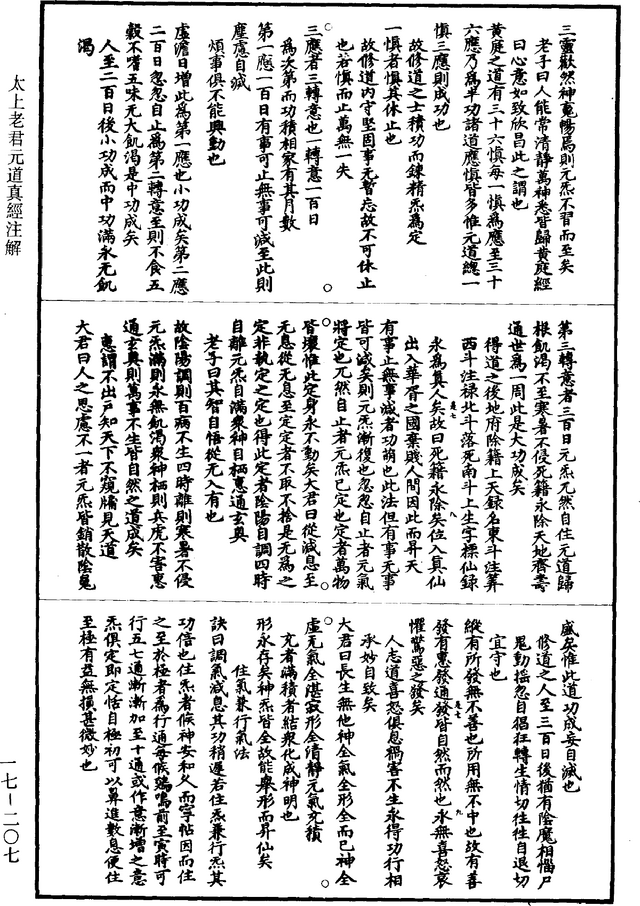 太上老君元道真經注解
三靈歡然神寬暢焉則元炁不習而至矣
老子曰人能常清静萬神悉皆歸黄庭經
曰心意如致欣昌此之謂也
黄庭之道有三十六慎每一慎爲應至三十
六應乃爲半功諸道應慎皆多惟元道總一
慎三應則成功也
故修道之士積功而鍊精炁爲定
一慎者慎其休止也
故修道内守堅固事无暫忘故不可休止
也若慎而止萬無一失
三應者三轉意也一轉意一百日
爲次第而功積相冢有其月數
第一應一百日有事可止無事可減至此則
塵慮自滅
煩事俱不能興動也
虚澹日增此爲第一應也小功成矣第二應
二百日忽忽自止爲第二轉意至則不食五
穀不嗜五味元大飢渴是中功成矣
人至二百日後小功成而中功滿永无飢
渴
第三轉意者三百日元炁兀然自住元道歸
根飢渴不至寒暑不侵死籍永除天地齊壽
通世爲一周此是大功成矣
得道之後地府除籍上天録名東斗注筭
西斗注禄北斗落死南斗上生字標仙録
永爲真人矣故曰死籍永除矣位入真仙
出入華胥之國棄賤人間因此而昇天
有事止無事減者功萌也此法但有事无事
皆可減矣則元炁漸復也忽忽自止者元氣
將定也兀然自止者元炁已定也定者萬物
皆壞惟此定身永不動矣大君曰從減息至
无息從无息至定定者不取不捨是无爲之
定非執定之定也得此定者陰陽自調四時
自離元炁自滿衆神自栖惠通玄奥
老子曰其智自悟從无入有也
故陰陽調則百病不生四時離則寒暑不侵
元炁滿則永無飢渴衆神栖則兵虎不害惠
通玄奥則萬事不生皆自然之道成矣
惠謂不出户知天下不窺牖見天道
大君曰人之思慮不一者元炁皆銷散陰鬼
盛矣惟此道功成妄自滅也
修道之人至三百日後猶有陰魔相惱尸
鬼動摇忽自猖狂轉生情切往往自退切
宜守也
縱有所發無不善也所用無不中也故有善
發有惠發通發皆自然而然也永無喜怒哀
懼驚惡之發矣
人志道喜怒俱息禍害不生永得功行相
承妙自致矣
大君曰長生無他神全氣全形全而已神全
虚无氣全湛寂形全清静元氣充積
充者滿積者結衆化成神明也
形永存矣神炁皆全故能舉形而昇仙矣
住氣兼行氣法
訣曰調氣減息其功稍遲若住炁兼行炁其
功倍也住炁者候神安和久而寧怗因而住
之至於極者爲行通每候鷄鳴前至寅時可
行五七通漸漸加至十通或作意漸增之意
炁俱定即定恬自極初可以鼻進數息便住
至極有益無損甚微妙也
一七－二〇七